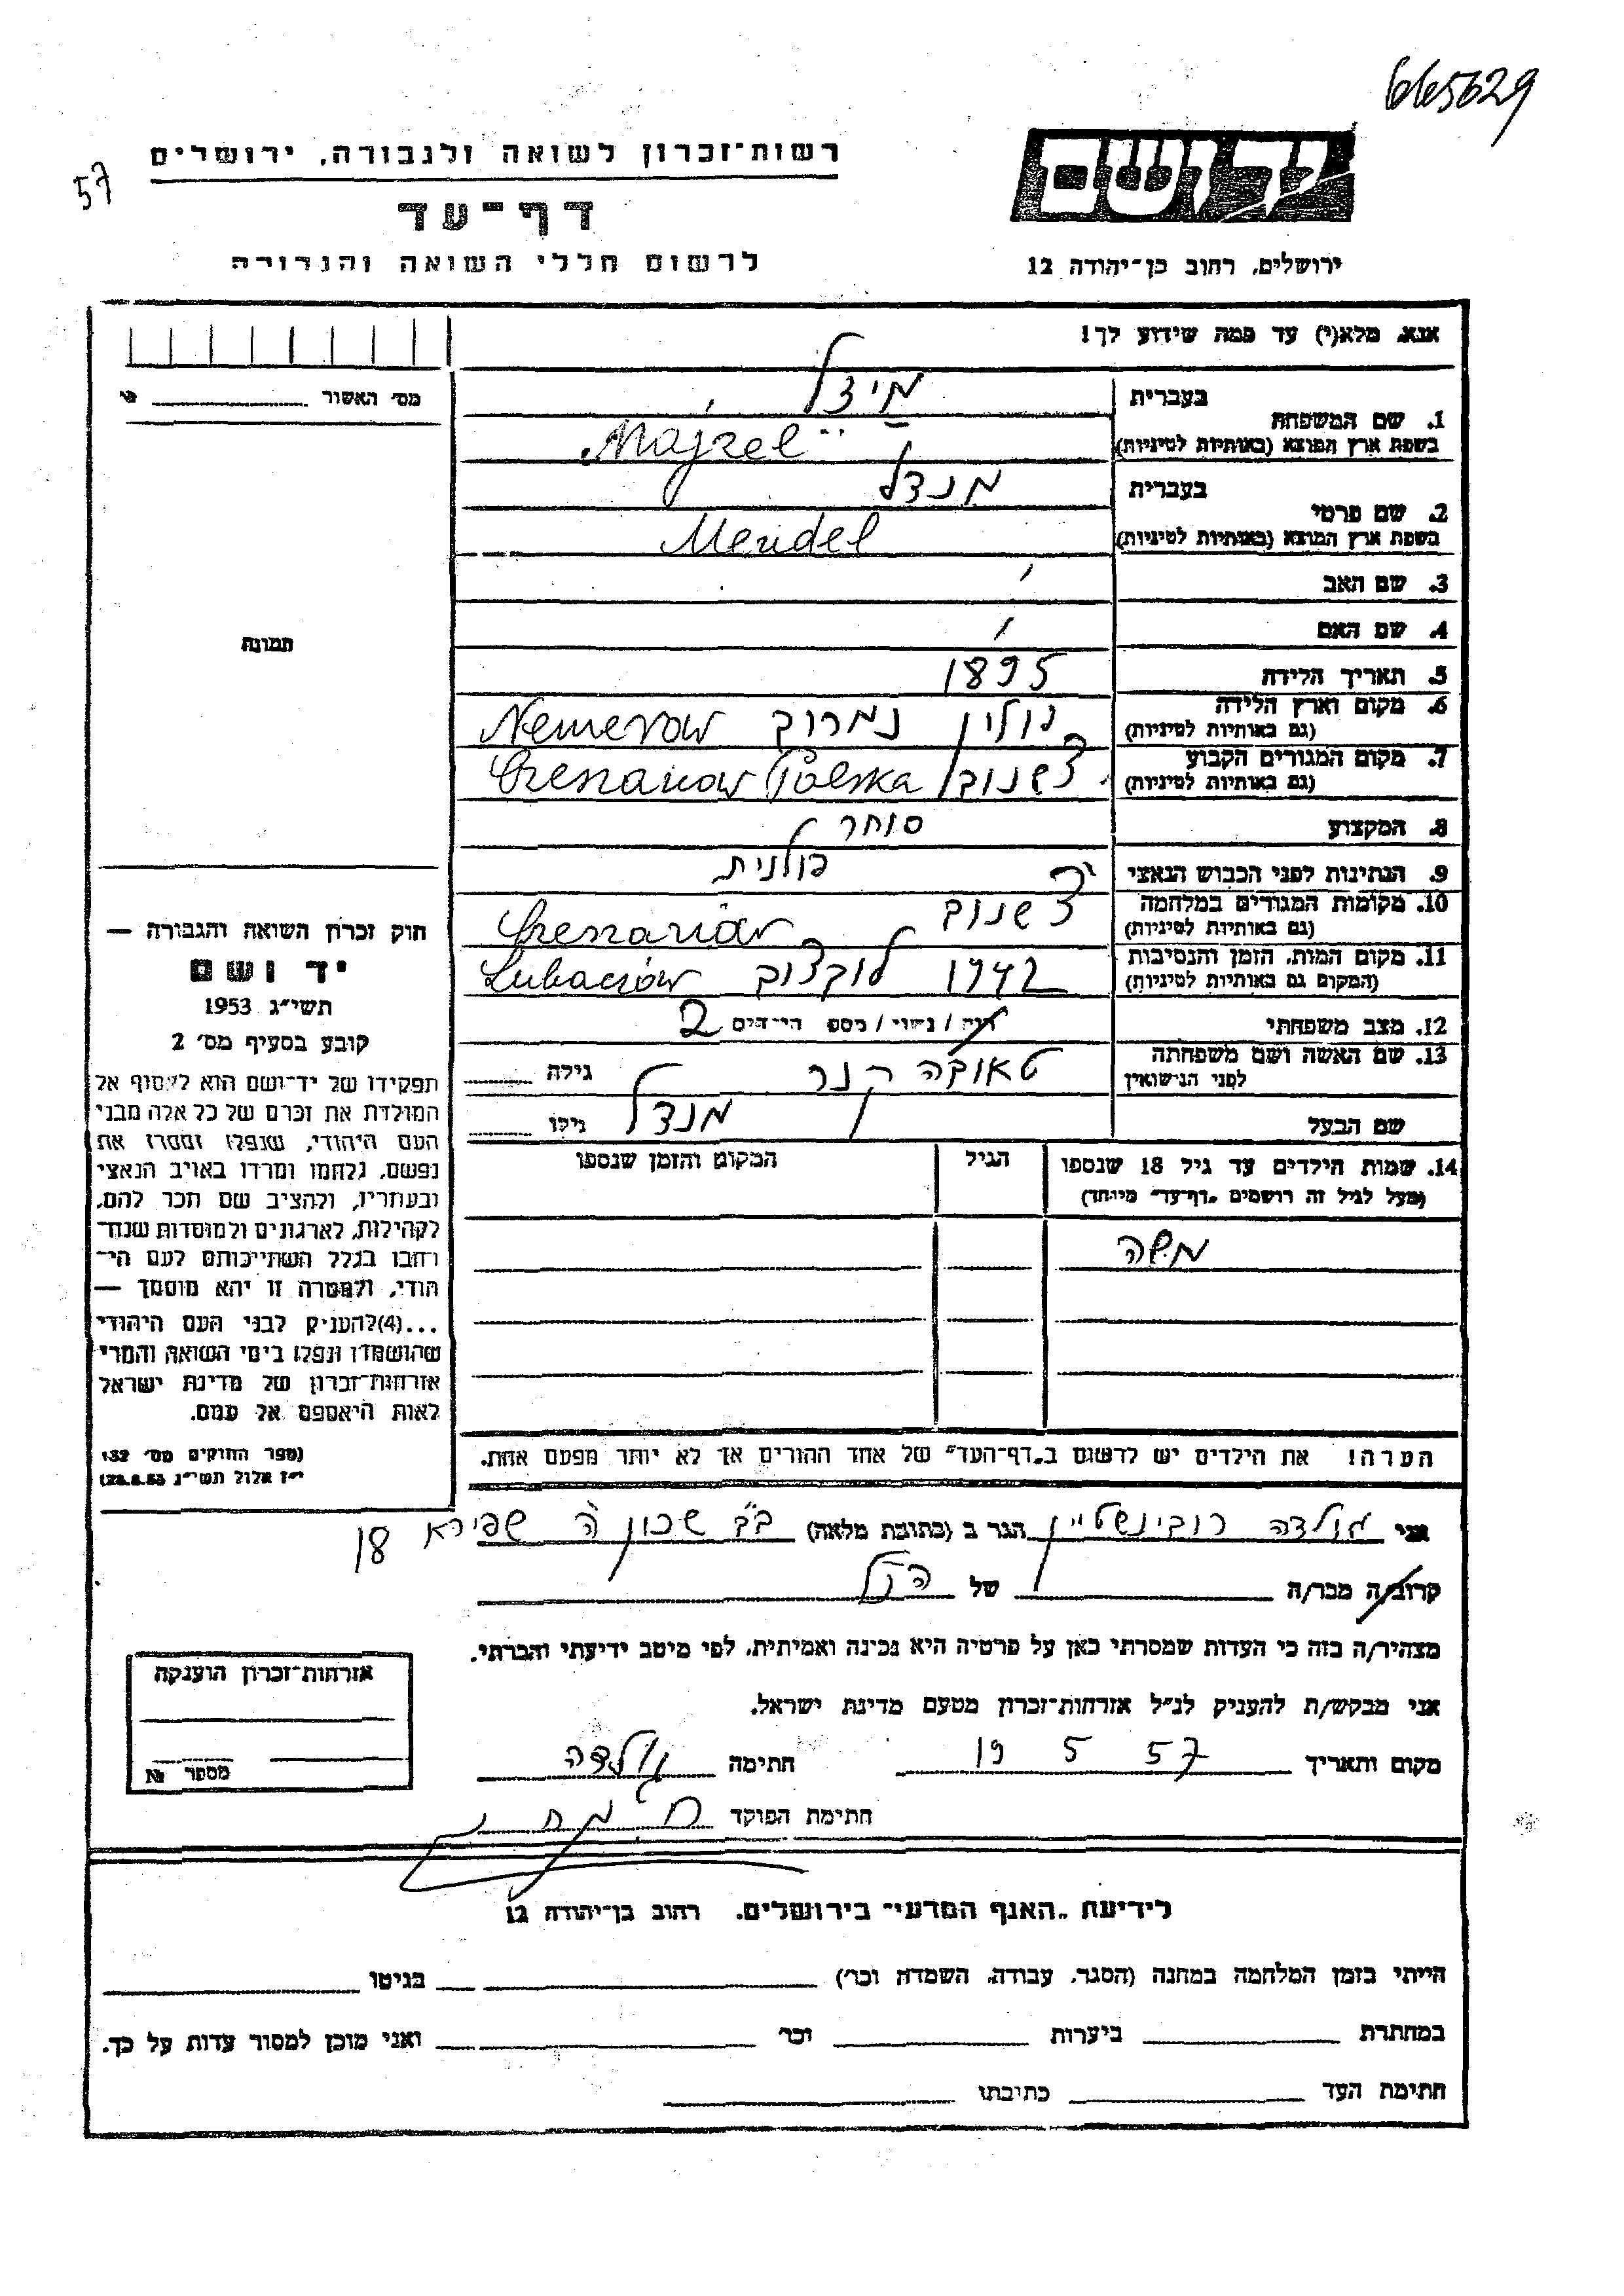 665629
רשות־זכרון לשואה ולגבורה, ירושלים
57
דף־עד
לרשום חללי השואה והגבורה
יד ושם
ירושלים, רחוב בן־יהודה 12
אנא, מלא(י) עד כמה שידוע לך!
מס' האשור
בעברית
מיזל
1. שם המשפחה
בשפת ארץ המוצא (באותיות לטיניות)
Majzel
בעברית
מנדל
2. שם פרטי
בשפת ארץ המוצא (באותיות לטיניות)
Mendel
3. שם האב
4. שם האם
תמונה
5. תאריך הלידה
1895
6. מקום וארץ הלידה
(גם באותיות לטיניות)
פולין נמרוב Nemerow
7. מקום המגורים הקבוע
(גם באותיות לטיניות)
צ'שנוב Czeszanow Polska
8. המקצוע
סוחר
9. הנתינות לפני הכבוש הנאצי
פולנית
10. מקומות המגורים במלחמה
(גם באותיות לטיניות)
צ'שנוב Czeszanów
11. מקום המות, הזמן והנסיבות
(המקום גם באותיות לטיניות)
1942 לובצוב Lubaczów
12. מצב משפחתי
רוק/ה / נשוי/ה / מספר הילדים 2
13. שם האשה ושם משפחתה
לפני הנישואין
טאובה קנר
גילה
שם הבעל
מנדל
גילו
14. שמות הילדים עד גיל 18 שנספו
(מעל לגיל זה רושמים „דף־עד" מיוחד)
הגיל
המקום והזמן שנספו
משה
הערה! את הילדים יש לרשום ב„דף־העד" של אחד ההורים אך לא יותר מפעם אחת.
חוק זכרון השואה והגבורה —
יד ושם
תשי״ג 1953
קובע בסעיף מס' 2
תפקידו של יד־ושם הוא לאסוף אל
המולדת את זכרם של כל אלה מבני
העם היהודי, שנפלו ומסרו את
נפשם, נלחמו ומרדו באויב הנאצי
ובעוזריו, ולהציב שם וזכר להם,
לקהילות, לארגונים ולמוסדות שנח־
רבו בגלל השתייכותם לעם הי־
הודי, ולמטרה זו יהא מוסמך —
...(4)להעניק לבני העם היהודי
שהושמדו ונפלו בימי השואה והמרי
אזרחות־זכרון של מדינת ישראל
לאות היאספם אל עמם.
(ספר החוקים מס' 132,
י״ז אלול תשי״ג 28.8.53)
אני גולדה רובינשטיין הגר ב (כתובת מלאה) ב"ב שכון ה' שפירא 18
קרוב/ה מכר/ה של הנ"ל
מצהיר/ה בזה כי העדות שמסרתי כאן על פרטיה היא נכונה ואמיתית, לפי מיטב ידיעתי והכרתי.
אני מבקש/ת להעניק לנ״ל אזרחות־זכרון מטעם מדינת ישראל.
מקום ותאריך 19 5 57 חתימה גולדה
חתימת הפוקד
אזרחות־זכרון הוענקה
מספר №
לידיעת „האגף המדעי" בירושלים, רחוב בן־יהודה 12
הייתי בזמן המלחמה במחנה (הסגר, עבודה, השמדה וכו') בגיטו
במחתרת ביערות וכו' ואני מוכן למסור עדות על כך.
חתימת העד כתיבתו